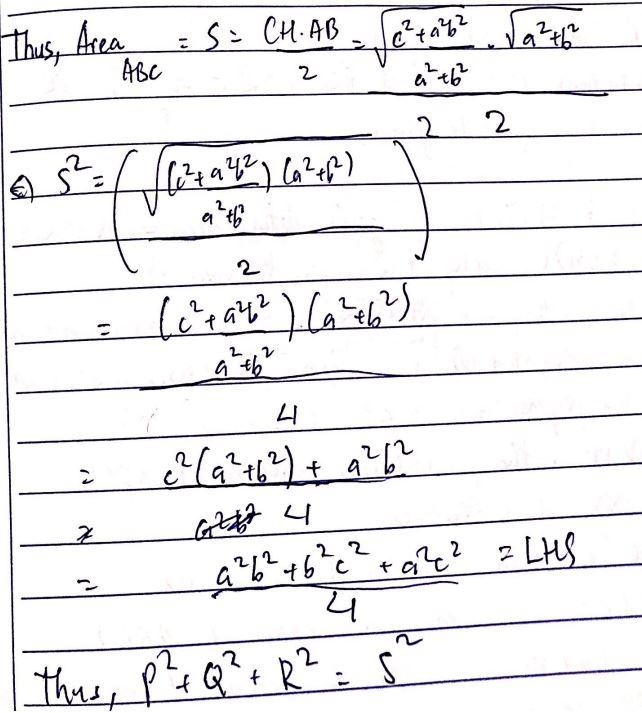 Thus, Area ABC = S = CH.AB / 2 = √(c² + a²b² / a²+b²) . √(a²+b²) / 2 2
⇔ S² = ( √((c² + a²b² / a²+b²) (a²+b²)) / 2 )
= (c² + a²b² / a²+b²) . (a²+b²) / 4
= c²(a²+b²) + a²b² / 4
= a²b² + b²c² + a²c² / 4 = LHS
Thus, P² + Q² + R² = S²